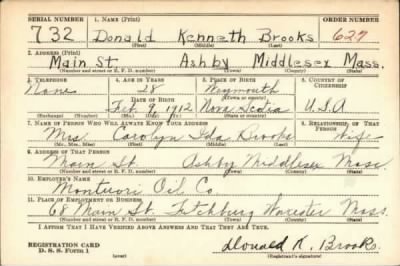 SERIAL NUMBER 1. NAME (Print) ORDER NUMBER
732 Donald Kenneth Brooks 627
(First) (Middle) (Last)
2. ADDRESS (Print)
Main St. Ashby Middlesex Mass.
(Number and street or R. F. D. number) (Town) (County) (State)
3. TELEPHONE 4. AGE IN YEARS 5. PLACE OF BIRTH 6. COUNTRY OF CITIZENSHIP
None 28 Weymouth
DATE OF BIRTH (Town or county)
Feb 9 1912 Nova Scotia U.S.A
(Exchange) (Number) (Mo.) (Day) (Yr.) (State or country)
7. NAME OF PERSON WHO WILL ALWAYS KNOW YOUR ADDRESS 8. RELATIONSHIP OF THAT PERSON
Mrs. Carolyn Ida Brooks Wife
(Mr., Mrs., Miss) (First) (Middle) (Last)
9. ADDRESS OF THAT PERSON
Main St Ashby Middlesex Mass
(Number and street or R. F. D. number) (Town) (County) (State)
10. EMPLOYER'S NAME
Montuori Oil Co.
11. PLACE OF EMPLOYMENT OR BUSINESS
68 Main St. Fitchburg Worcester Mass.
(Number and street or R. F. D. number) (Town) (County) (State)
I AFFIRM THAT I HAVE VERIFIED ABOVE ANSWERS AND THAT THEY ARE TRUE.
REGISTRATION CARD
D. S. S. Form 1 (over) Donald K. Brooks
(Registrant's signature)